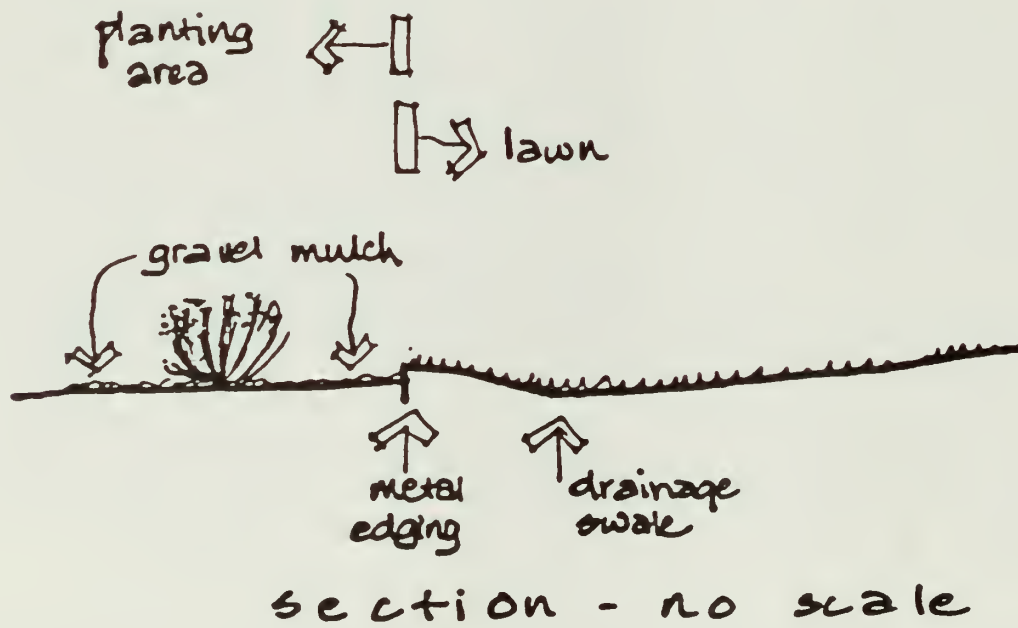 planting
area
lawn
gravel mulch
metal
edging
drainage
swale
section - no scale